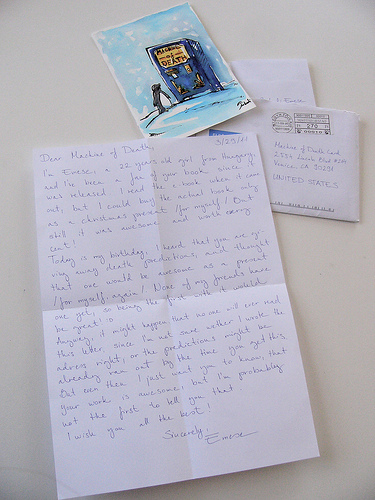 MACHINE
of
DEATH
Emese
270
Machine of Death Card
Venice, CA 90291
UNITED STATES
Dear Machine of Death,
3/29/11
I'm Emese, a 22 years old girl from Hungary,
and I've been a fan of your book since
was released. I read the e-book when it came
out, but I could buy the actual book only
as a christmas present /for myself/. But
still it was awesome and worth every
cent!
Today is my birthday. I heard that you are gi-
ving away death predictions, and thought
that one would be awesome as a present
/for myself, again/. None of my friends have
one yet, so being the first with it would
be great! :)
Anyway, it might happen that no one will ever read
this letter, since I'm not sure wether I wrote the
adress right, or the predictions might be
already ran out by the time you get this.
But even then I just want you to know, that
your work is awesome, but I'm probably
not the first to tell you that.
I wish you all the best!
Sincerely,
Emese